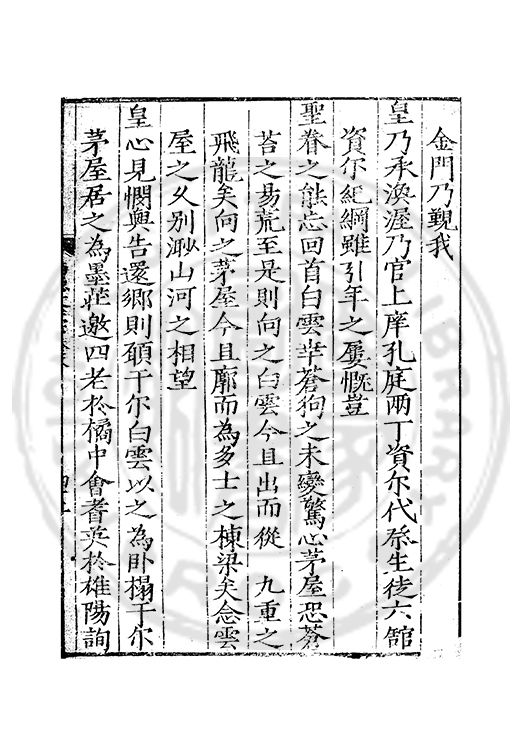 金門乃覲我
皇乃承渙渥乃官上庠孔庭两丁資尓代祭生徒六舘
資尓紀綱雖引年之屢慨豈
聖眷之能忘回首白雲幸蒼狗之未變驚心茅屋恐蒼
苔之易荒至是則向之白雲今且出而從 九重之
飛龍矣向之茅屋今且廓而為多士之棟梁矣念雲
屋之乆别渺山河之相望
皇心見憫輿告還鄉則碩于尓白雲以之為卧榻于尓
茅屋居之為墨莊邀四老於橘中會耆英於雒陽詢